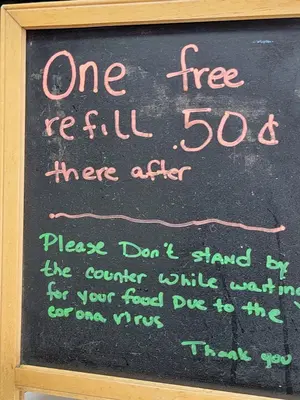 One free
refill .50¢
there after
Please Don't stand by
the counter while waiting
for your food Due to the
corona virus
Thank you